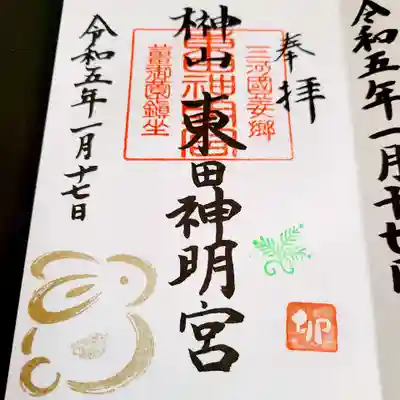 奉拝
三河國吾妻郷
榊山 東田神明宮
薑御園鎮坐
令和五年一月十七日
卯
令和五年一月十七日